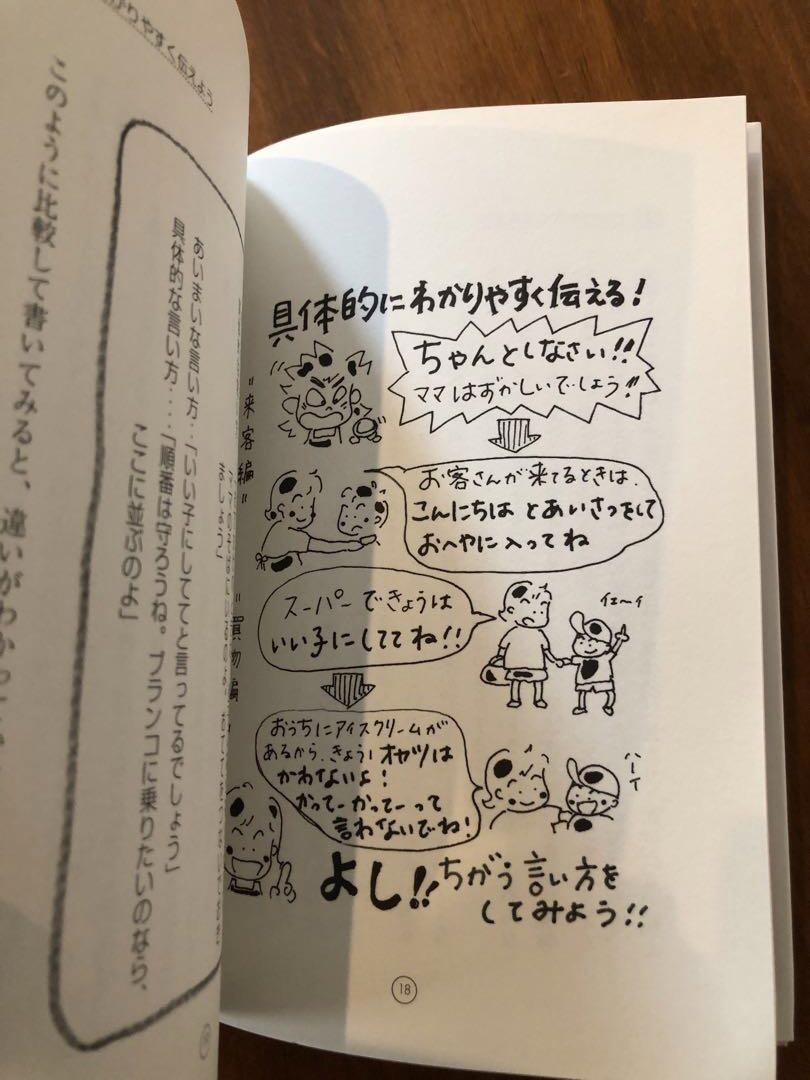 具体的にわかりやすく伝える！
"来客編"
ちゃんとしなさい!!
ママはずかしいでしょう!!
お客さんが来てるときは、
こんにちは とあいさつをして
おへやに入ってね
"買物編"
スーパーできょうは
いい子にしててね!!
イェ〜イ
おうちにアイスクリームが
あるから、きょうはオヤツは
かわないよ！
かってーかってーって
言わないでね！
ハーイ
よし!!ちがう言い方を
してみよう!!
18
りやすく伝えよう
このように比較して書いてみると、違いがわかって
あいまいな言い方‥「いい子にしててと言ってるでしょう」
具体的な言い方‥‥「順番は守ろうね。ブランコに乗りたいのなら、
ここに並ぶのよ」